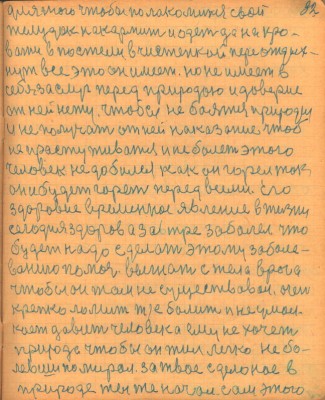 82
для того чтобы полакомится свой
желудок накармит и одетда на кро-
вати в постели в чистенкой переотдых-
нут все это он имеет. но не имеет в
себе заслуг перед природаю и доверие
от ней нету, чтобся не боятся природу
и не получат от ней наказание чтоб
на простуживатся и не болет этого
человек не добился как он горел так
он и будет горет перед всеми. Его
здоровие временное явление в жизни
сегодня здоров а завтре заболел что
будет надо сделат этому заболе-
ванию помоч, выгнат с тела врага
чтобы он там не существовал. очен
крепко ломит т/е болит и не умол-
кает давит человека ему не хочет
природа чтобы он жил легко не бо-
левши помирал. за твое сделоное в
природе ты же начал. сам этого